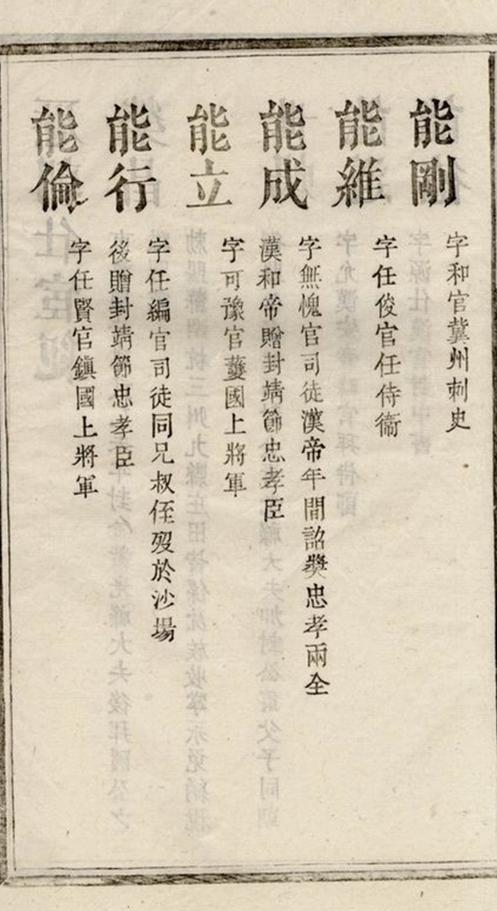 能剛
字和官冀州刺史
能維
字任俊官任侍衞
能成
字無愧官司徒漢帝年間詔獎忠孝兩全
漢和帝贈封靖節忠孝臣
能立
字可豫官護國上將軍
能行
字任編官司徒同兄叔侄歿於沙場
後贈封靖節忠孝臣
能倫
字任賢官鎮國上將軍